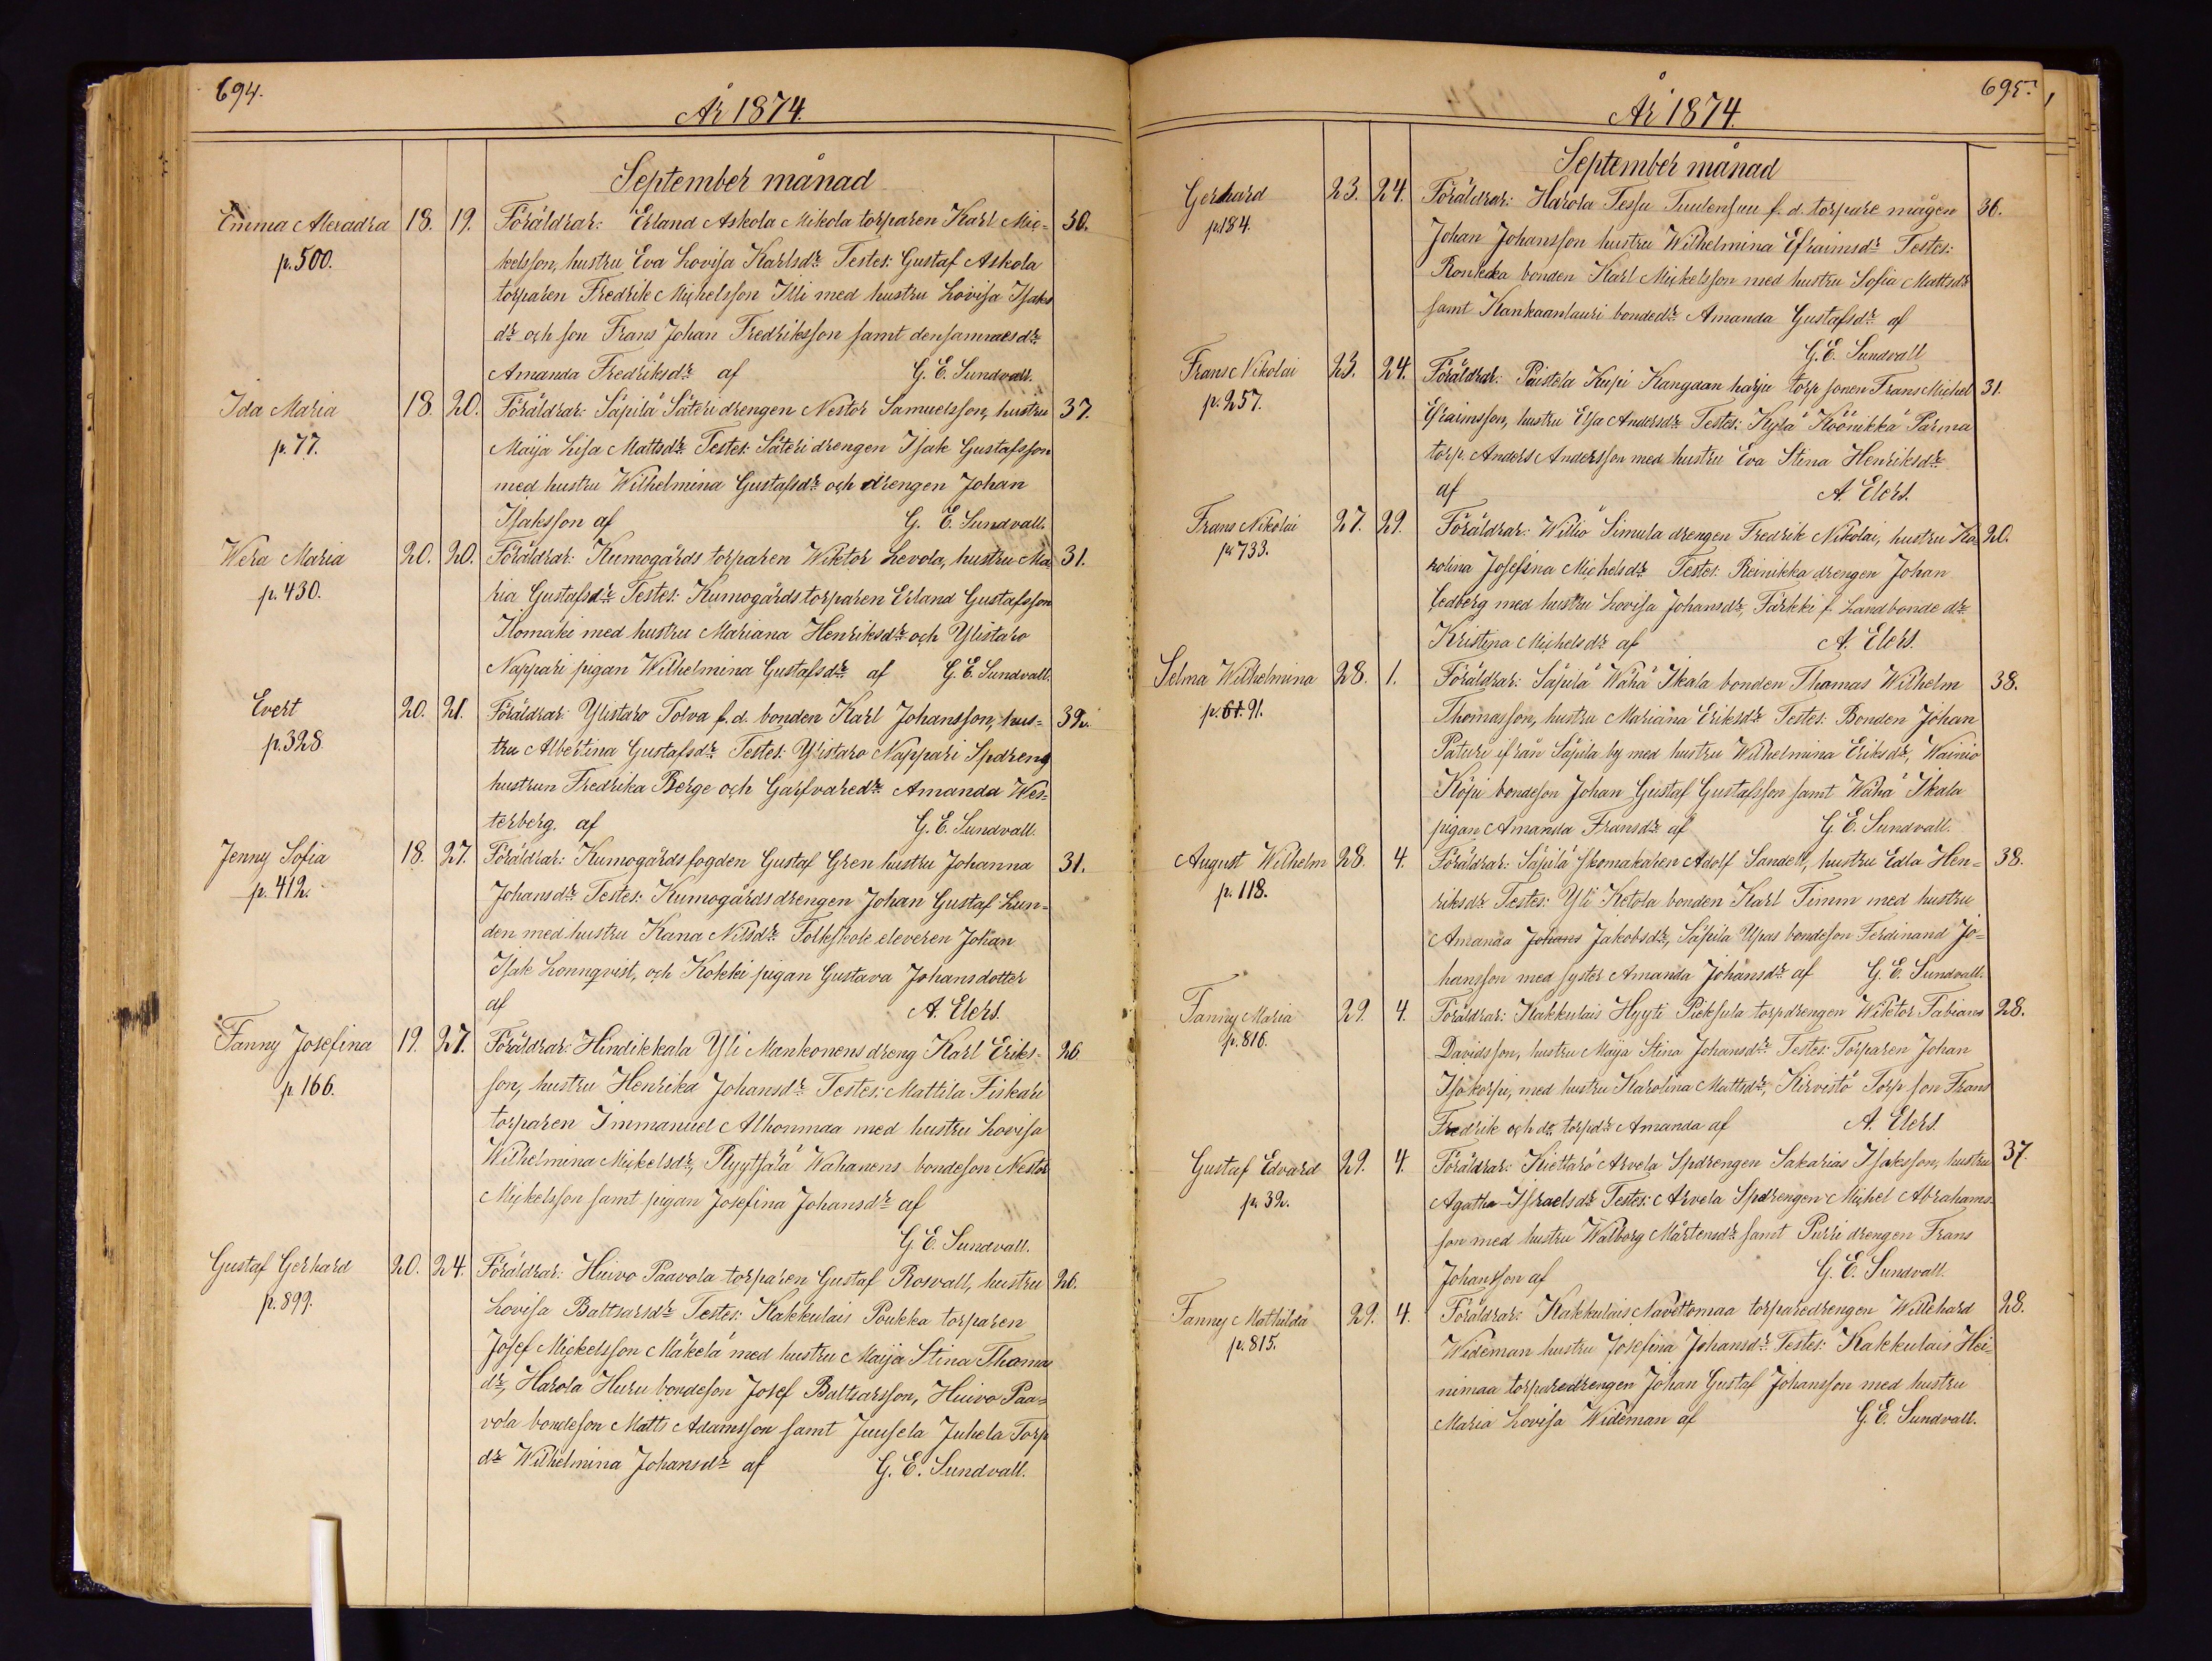 694.
År 1874.
September månad
Emma Alexadra 18. 19. Föräldrar: Erland Askola Mikola torparen Karl Mic- 30.
p. 500. kelsson, hustru Eva Lovisa Karlsdr. Testes: Gustaf Askola
torparen Fredrik Michelsson Illi med hustru Lovisa Isaks
dr och son Frans Johan Fredriksson samt densammes dr
Amanda Fredriksdr af G. E. Sundvall.
Ida Maria 18. 20. Föräldrar: Säpilä Säteri drengen Nestor Samuelsson, hustru 37.
p. 77. Maija Lisa Mattsdr Testes: Säteri drengen Isak Gustafsson
med hustru Wilhelmina Gustafsdr och drengen Johan
Isaksson af G. E. Sundvall.
Wera Maria 20. 20. Föräldrar: Kumogårds torparen Wiktor Levola, hustru Ma- 31.
p. 430. ria Gustafsdr Testes: Kumogårds torparen Erland Gustafsson
Ilomäki med hustru Mariana Henriksdr och Ylistaro
Nappari pigan Wilhelmina Gustafsdr af G. E. Sundvall.
Evert 20. 21. Föräldrar: Ylistaro Tolva f. d. bonden Karl Johansson, hus- 32.
p. 328. tru Albertina Gustafsdr Testes: Ylistaro Nappari Spdreng
hustrun Fredrika Berge och Garfvaredr Amanda Wes-
terberg. af G. E. Sundvall.
Jenny Sofia 18. 27. Föräldrar: Kumogårds fogden Gustaf Gren hustru Johanna 31.
p. 412. Johansdr Testes: Kumogårds drengen Johan Gustaf Lun-
den med hustru Kana Nilsdr Folkskole eleveren Johan
Isak Lonnqvist, och Kokki pigan Gustava Johansdotter
af A. Elers.
Fanny Josefina 19. 27. Föräldrar: Hindikkala Yli Mankonens dreng Karl Eriks- 26
p. 166. son, hustru Henrika Johansdr Testes: Mattila Fiskari
torparen Immanuel Alhonmaa med hustru Lovisa
Wilhelmina Mickelsdr, Ryytsälä Wahanens bondeson Nestor
Mickelsson samt pigan Josefina Johansdr af
G. E. Sundvall.
Gustaf Gerhard 20. 24. Föräldrar: Huivo Paavola torparen Gustaf Rosvall, hustru 26.
p. 899. Lovisa Baltsarsdr Testes: Kakkulais Poukka torparen
Josef Mickelsson Mäkelä med hustru Maija Stina Thomas
dr, Harola Huru bondeson Josef Baltsarsson, Huivo Paa-
vola bondeson Matts Adamsson samt Juusela Juhela Torp
dr Wilhelmina Johansdr af G. E. Sundvall.
695.
År 1874
September månad
Gerhard 23. 24. Föräldrar: Harola Tessu Tuulensuu f. d. torpare mågen 36.
p. 184. Johan Johansson hustru Wilhelmina Efraimsdr Testes:
bonden Karl Mickelsson med hustru Sofia Mattsdr
samt Kankaanlauri bondedr Amanda Gustafsdr af
G. E. Sundvall
Frans Nikolai 23. 24. Föräldrar: Paistila Kupi Kangdan harju torp sonen Frans Michel 31.
p. 257. Efraimsson, hustru Elsa Andersdr Testes: Kylä Köönikkä Pärma
torp. Anders Andersson med hustru Eva Stina Henriksdr
af A. Elers.
Frans Nikolai 27. 29. Föräldrar: Williö Simula drengen Fredrik Nikolai, hustru Ka- 20.
p. 733. rolina Josefina Michelsdr Testes: Reinikka drengen Johan
Cedberg med hustru Lovisa Johansdr, Färkki f. Landbonde dr
Kristina Michelsdr af A. Elers.
Selma Wilhelmina 28. 1. Föräldrar: Säpilä Wähä Ikala bonden Thomas Wilhelm 38.
p. 61. 91. Thomasson, hustru Mariana Eriksdr Testes: Bonden Johan
Paturi ifrån Säpila by med hustru Wilhelmina Eriksdr, Wainio
Köpi bondeson Johan Gustaf Gustafsson samt Wähä Ikala
pigan Amanda Fransdr af G. E. Sundvall.
August Wilhelm 28. 4. Föräldrar: Säpilä skomakaren Adolf Sandell, hustru Edla Hen- 38.
p. 118. riksdr Testes: Yli Ketola bonden Karl Timm med hustru
Amanda Johans Jakobsdr, Säpila Upas bondeson Ferdinand Jo-
hansson med syster Amanda Johansdr af G. E. Sundvall.
Fanny Maria 29. 4. Föräldrar: Kakkulais Hyyti Pieksula torpdrengen Wiktor Fabians 28.
p. 816. Davidsson, hustru Maija Stina Johansdr Testes: Torparen Johan
Isokorpi, med hustru Karolina Mattsdr, Kirvistö Torp son Frans
Fredrik och do torpdr Amanda af A. Elers.
Gustaf Edvard 29. 4. Föräldrar: Kiettarö Arvela Spdrengen Sakarias Isaksson, hustru 37.
p. 32. Agatha Israelsdr Testes: Arvela Spdrengen Michel Abrahams-
son med hustru Walborg Mårtensdr samt Purri drengen Frans
Johansson af G. E. Sundvall.
Fanny Mathilda 29. 4. Föräldrar: Kakkulais Navettomaa torparedrengen Willehard 28.
p. 815. Wideman hustru Josefina Johansdr Testes: Kakkulais Hei-
nimaa torparedrengen Johan Gustaf Johansson med hustru
Maria Lovisa Wideman af G. E. Sundvall.